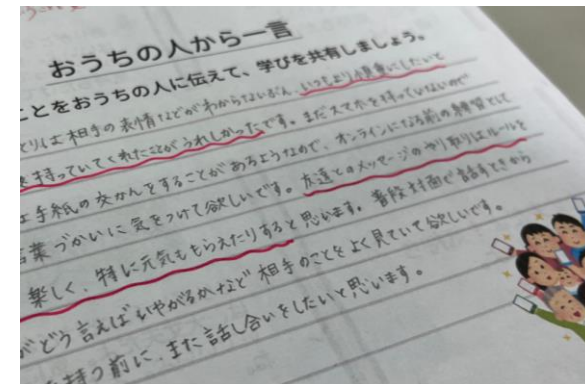 おうちの人から一言
ことをおうちの人に伝えて、学びを共有しましょう。
とりは相手の表情などがわからないぶん、いつもより慎重にしたいと
を持っていてくれたことがうれしかったです。まだスマホを持っていないので
は手紙の交かんをすることがあるようなので、オンラインになる前の練習として
言葉づかいに気をつけて欲しいです。友達とのメッセージのやり取りはルールを
楽しく、時に元気ももらえたりすると思います。普段対面で話すときから
がどう言えばいやがるかなど相手のことをよく見ていて欲しいです。
を持つ前に、また話し合いをしたいと思います。